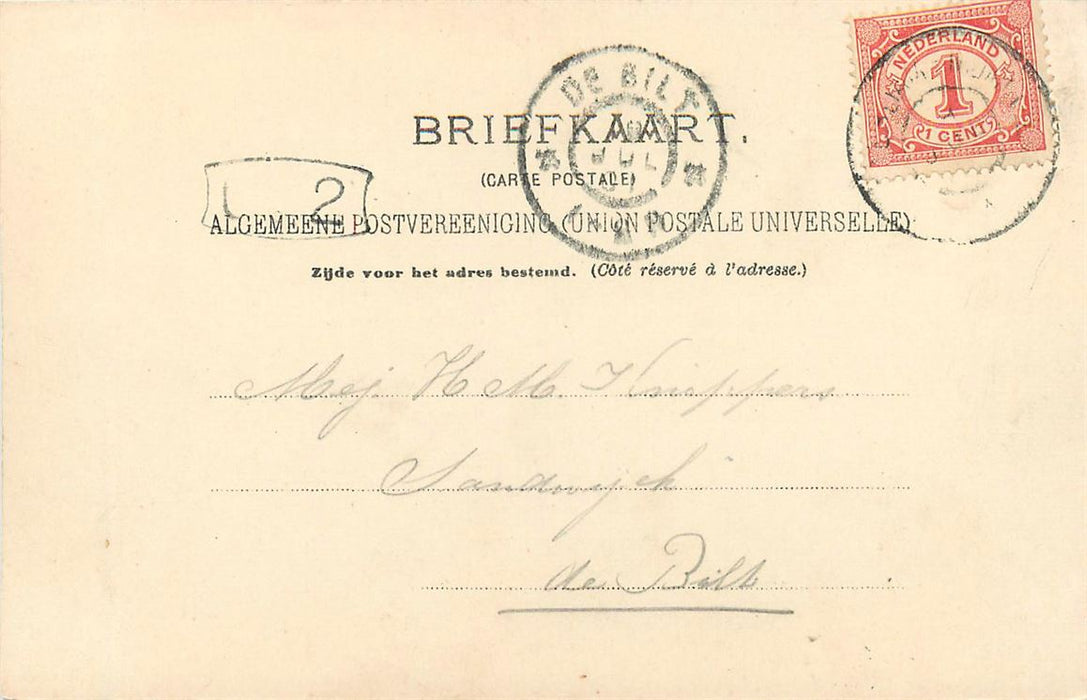 NEDERLAND
1
1 CENT
DE BILT
JUL
BRIEFKAART.
(CARTE POSTALE)
2
ALGEMEENE POSTVEREENIGING (UNION POSTALE UNIVERSELLE)
Zijde voor het adres bestemd. (Côté réservé à l'adresse.)
Mej. H M. Knippers
Sandwijck
de Bilt